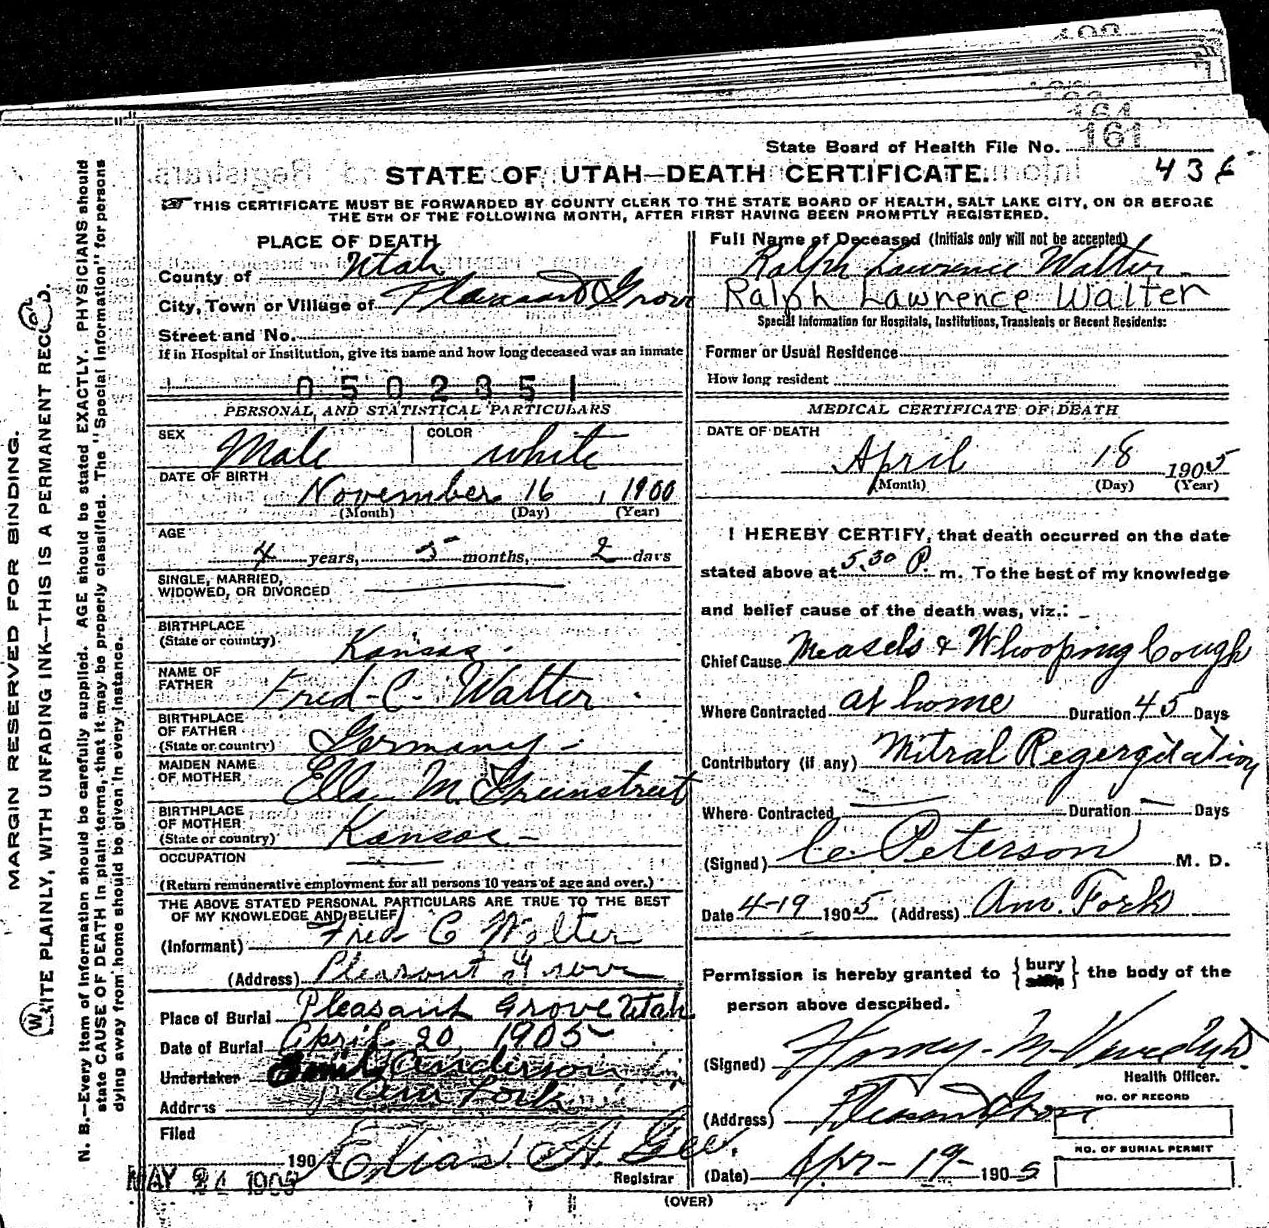 161
State Board of Health File No.
436
STATE OF UTAH—DEATH CERTIFICATE.
THIS CERTIFICATE MUST BE FORWARDED BY COUNTY CLERK TO THE STATE BOARD OF HEALTH, SALT LAKE CITY, ON OR BEFORE
THE 5TH OF THE FOLLOWING MONTH, AFTER FIRST HAVING BEEN PROMPTLY REGISTERED.
PLACE OF DEATH
County of Utah
City, Town or Village of Pleasant Grove
Street and No.
If in Hospital or Institution, give its name and how long deceased was an inmate
0502351
PERSONAL AND STATISTICAL PARTICULARS
SEX Male COLOR white
DATE OF BIRTH
November 16, 1900
(Month) (Day) (Year)
AGE
4 years, 5 months, 2 days
SINGLE, MARRIED,
WIDOWED, OR DIVORCED
BIRTHPLACE
(State or country) Kansas.
NAME OF
FATHER Fred-C- Walter
BIRTHPLACE
OF FATHER
(State or country) Germany-
MAIDEN NAME
OF MOTHER Ella M. Greenstreet
BIRTHPLACE
OF MOTHER
(State or country) Kansas-
OCCUPATION
(Return remunerative employment for all persons 10 years of age and over.)
THE ABOVE STATED PERSONAL PARTICULARS ARE TRUE TO THE BEST
OF MY KNOWLEDGE AND BELIEF
(Informant) Fred C Walter
(Address) Pleasant Grove
Place of Burial Pleasant Grove Utah
Date of Burial April 20 1905
Undertaker Anderson
Address Am Fork
Filed
MAY 24 1905 190 Elias A. Gee, Registrar
Full Name of Deceased (Initials only will not be accepted)
Ralph Lawrence Walter
Ralph Lawrence Walter
Special Information for Hospitals, Institutions, Transients or Recent Residents:
Former or Usual Residence
How long resident
MEDICAL CERTIFICATE OF DEATH
DATE OF DEATH
April 18 1905
(Month) (Day) (Year)
I HEREBY CERTIFY, that death occurred on the date
stated above at 5.30 P. m. To the best of my knowledge
and belief cause of the death was, viz.:
Chief Cause Measels & Whooping Cough
Where Contracted at home Duration 45 Days
Contributory (if any) Mitral Regergitation
Where Contracted Duration Days
(Signed) Peterson M. D.
Date 4-19 1905 (Address) Am. Fork
Permission is hereby granted to {bury} the body of the
person above described.
(Signed)
Health Officer.
(Address) Pleasant Grove
NO. OF RECORD
NO. OF BURIAL PERMIT
(Date) Apr-19- 1905
(OVER)
MARGIN RESERVED FOR BINDING.
WRITE PLAINLY, WITH UNFADING INK—THIS IS A PERMANENT RECORD.
N. B.—Every item of information should be carefully supplied. AGE should be stated EXACTLY. PHYSICIANS should
state CAUSE OF DEATH in plain terms, that it may be properly classified. The "Special Information" for persons
dying away from home should be given in every instance.